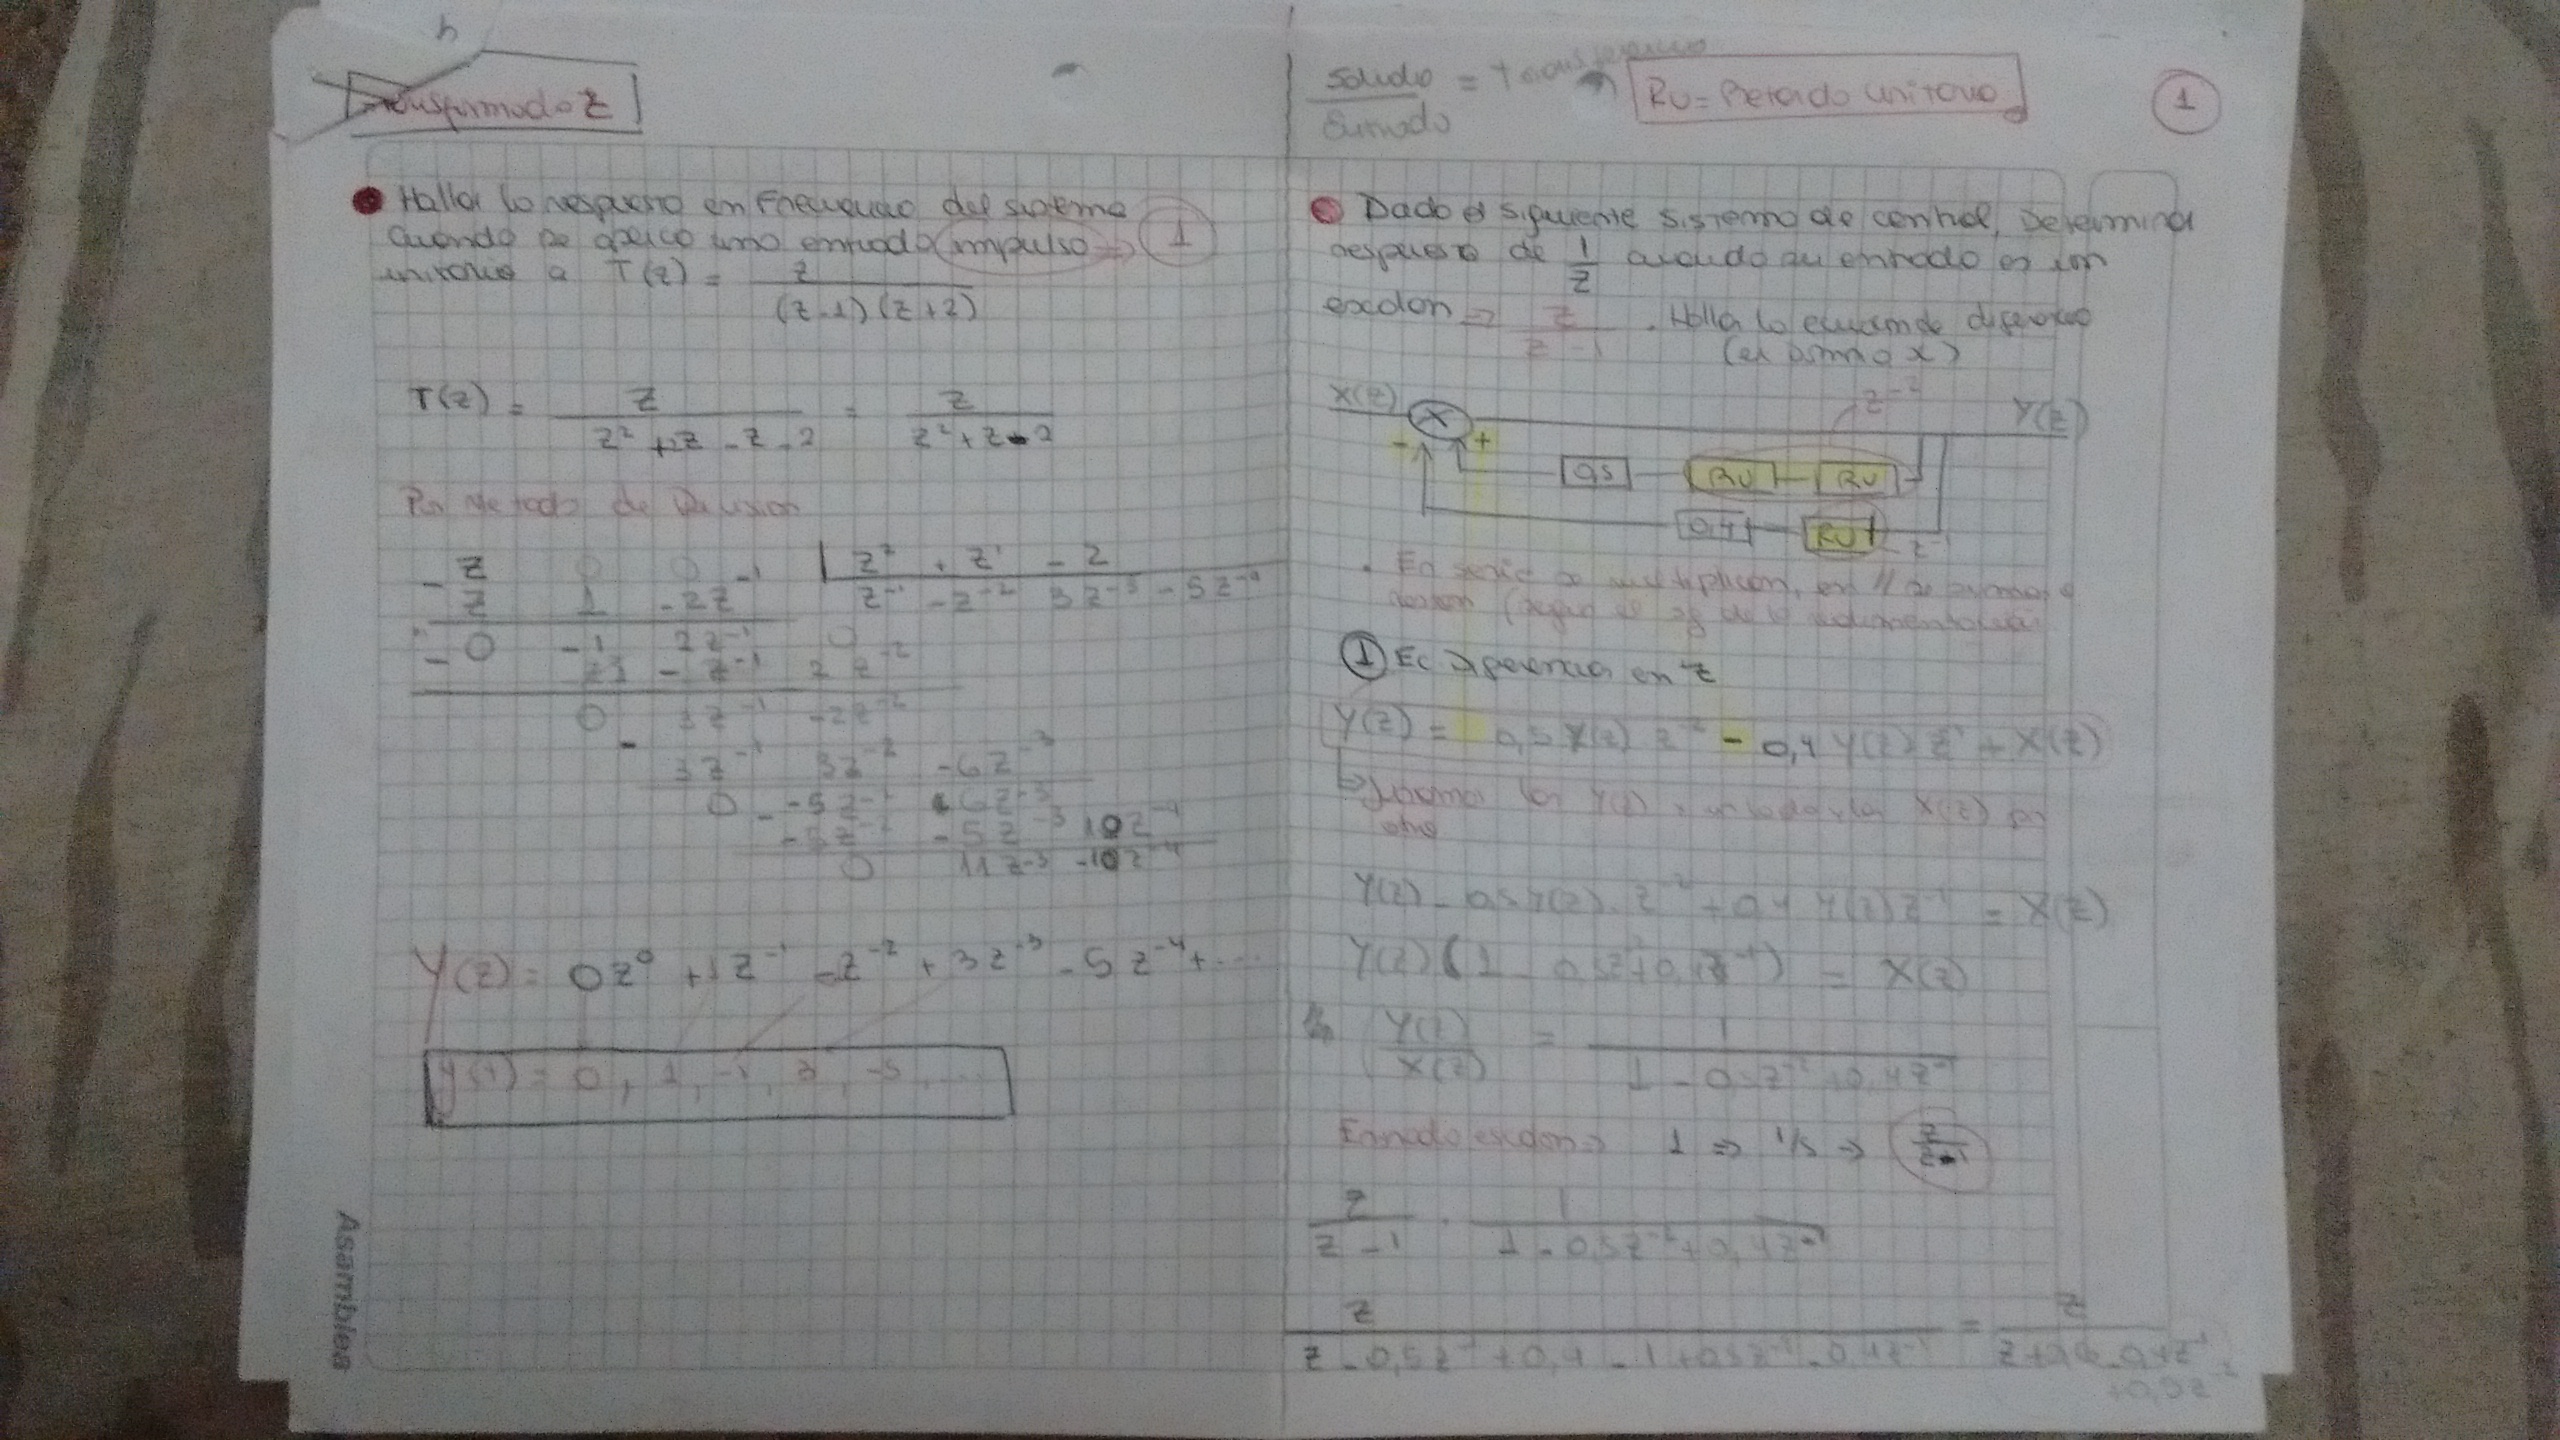 h
Transformada Z
Hallar la respuesta en Frecuencia del sistema
cuando se aplica una entrada impulso => 1
unitario a T(z) = z / (z-1)(z+2)
T(z) = z / z² + 2z - z - 2 = z / z² + z - 2
Por Metodo de Division
- z 0 0 | z² + z¹ - 2
z 1 - 2z⁻¹ z⁻¹ - z⁻² 3z⁻³ - 5z⁻⁴
0 -1 2z⁻¹ 0
- z⁻¹ 2z⁻²
0 3z⁻¹ -2z⁻²
- 3z⁻¹ 3z⁻² -6z⁻³
0 -5z⁻² 6z⁻³
- -5z⁻² -5z⁻³ 10z⁻⁴
0 11z⁻³ -10z⁻⁴
Y(z) = 0z⁰ + 1z⁻¹ - z⁻² + 3z⁻³ - 5z⁻⁴ + ...
y(t) = 0, 1, -1, 3, -5, ...
Asamblea
Salida / Entrada = transferencia
RU = Retardo unitario
1
Dado el siguiente sistema de control, Determinar
respuesta de 1/z cuando su entrada es un
escalon => z / z - 1 . Halla la ecuacion de diferencia
X(z) X z⁻² Y(z)
- +
0,5 RU RU
0,4 RU z⁻¹
En serie se multiplican, en // se suman o
restan
1 Ec Diferencia en z
Y(z) = 0,5 Y(z) z⁻² - 0,4 Y(z) z⁻¹ + X(z)
los Y(z) a un lado y los X(z) en
otro
Y(z) - 0,5 Y(z) . z⁻² + 0,4 Y(z) z⁻¹ = X(z)
Y(z) (1 - 0,5z⁻² + 0,4z⁻¹) = X(z)
Y(z) / X(z) = 1 / 1 - 0,5z⁻² + 0,4z⁻¹
Entrada escalon => 1 => 1/s => z / z-1
z / z - 1 . 1 / 1 - 0,5z⁻² + 0,4z⁻¹
z / z - 0,5z⁻¹ + 0,4 - 1 + 0,5z⁻² - 0,4z⁻¹ = z
+0,5z⁻²